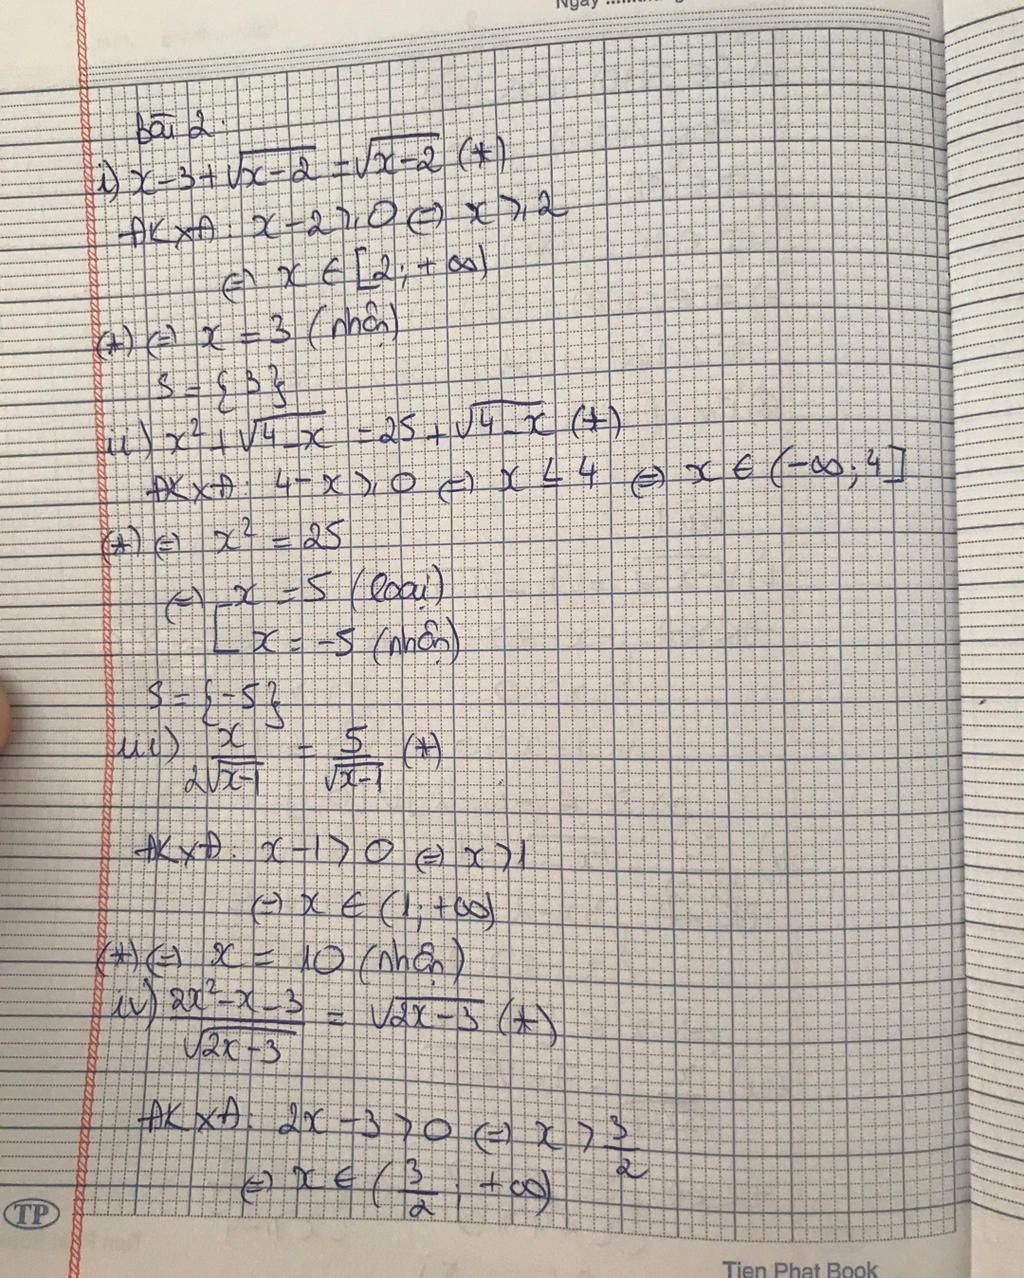 Ngày
Bài 2.
i) x-3+√(x-2) = √(x-2) (*)
ĐKXĐ: x-2 ⩾ 0 ⇔ x ⩾ 2
⇔ x ∈ [2; +∞)
(*) ⇔ x = 3 (nhận)
S = {3}
ii) x² + √(4-x) = 25 + √(4-x) (*)
ĐKXĐ: 4-x ⩾ 0 ⇔ x ≤ 4 ⇔ x ∈ (-∞; 4]
(*) ⇔ x² = 25
⇔ [ x = 5 (loại)
x = -5 (nhận)
S = {-5}
iii) x/(2√(x-1)) = 5/√(x-1) (*)
ĐKXĐ: x-1 > 0 ⇔ x > 1
⇔ x ∈ (1; +∞)
(*) ⇔ x = 10 (nhận)
iv) (2x²-x-3)/√(2x-3) = √(2x-3) (*)
ĐKXĐ: 2x-3 > 0 ⇔ x > 3/2
⇔ x ∈ (3/2; +∞)
TP
Tien Phat Book